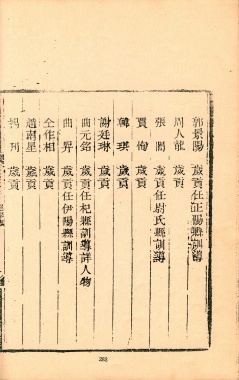 郭景陽 歲貢任正陽縣訓導
周人龍 歲貢
張閎 歲貢任尉氏縣訓導
賈恂 歲貢
韓琪 歲貢
謝廷琳 歲貢
曲元銘 歲貢任杞縣訓導詳人物
曲昇 歲貢任伊陽縣訓導
仝作相 歲貢
趙南星 歲貢
楊刋 歲貢
282